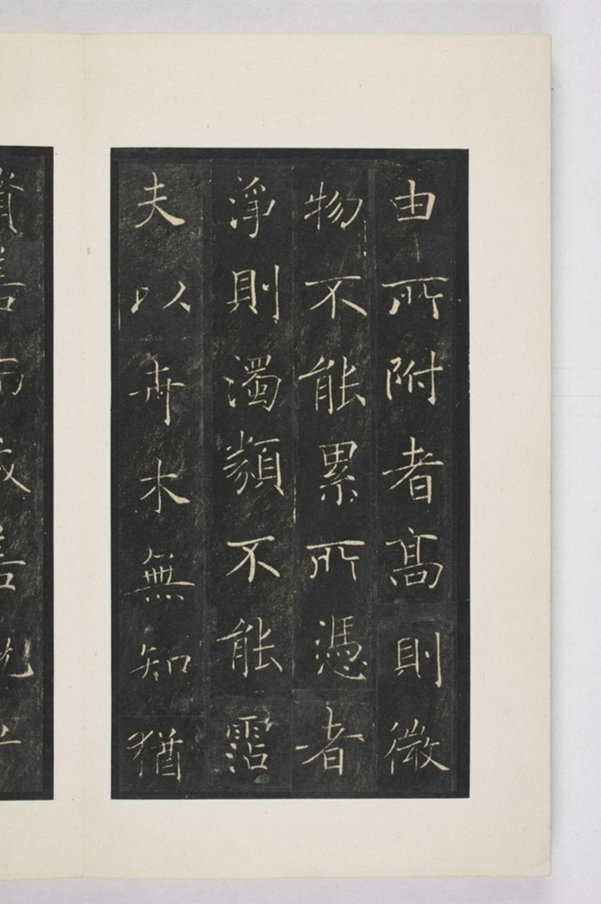 由所附者高則微
物不能累所憑者
淨則濁類不能霑
夫以卉木無知猶
資善而成善況乎